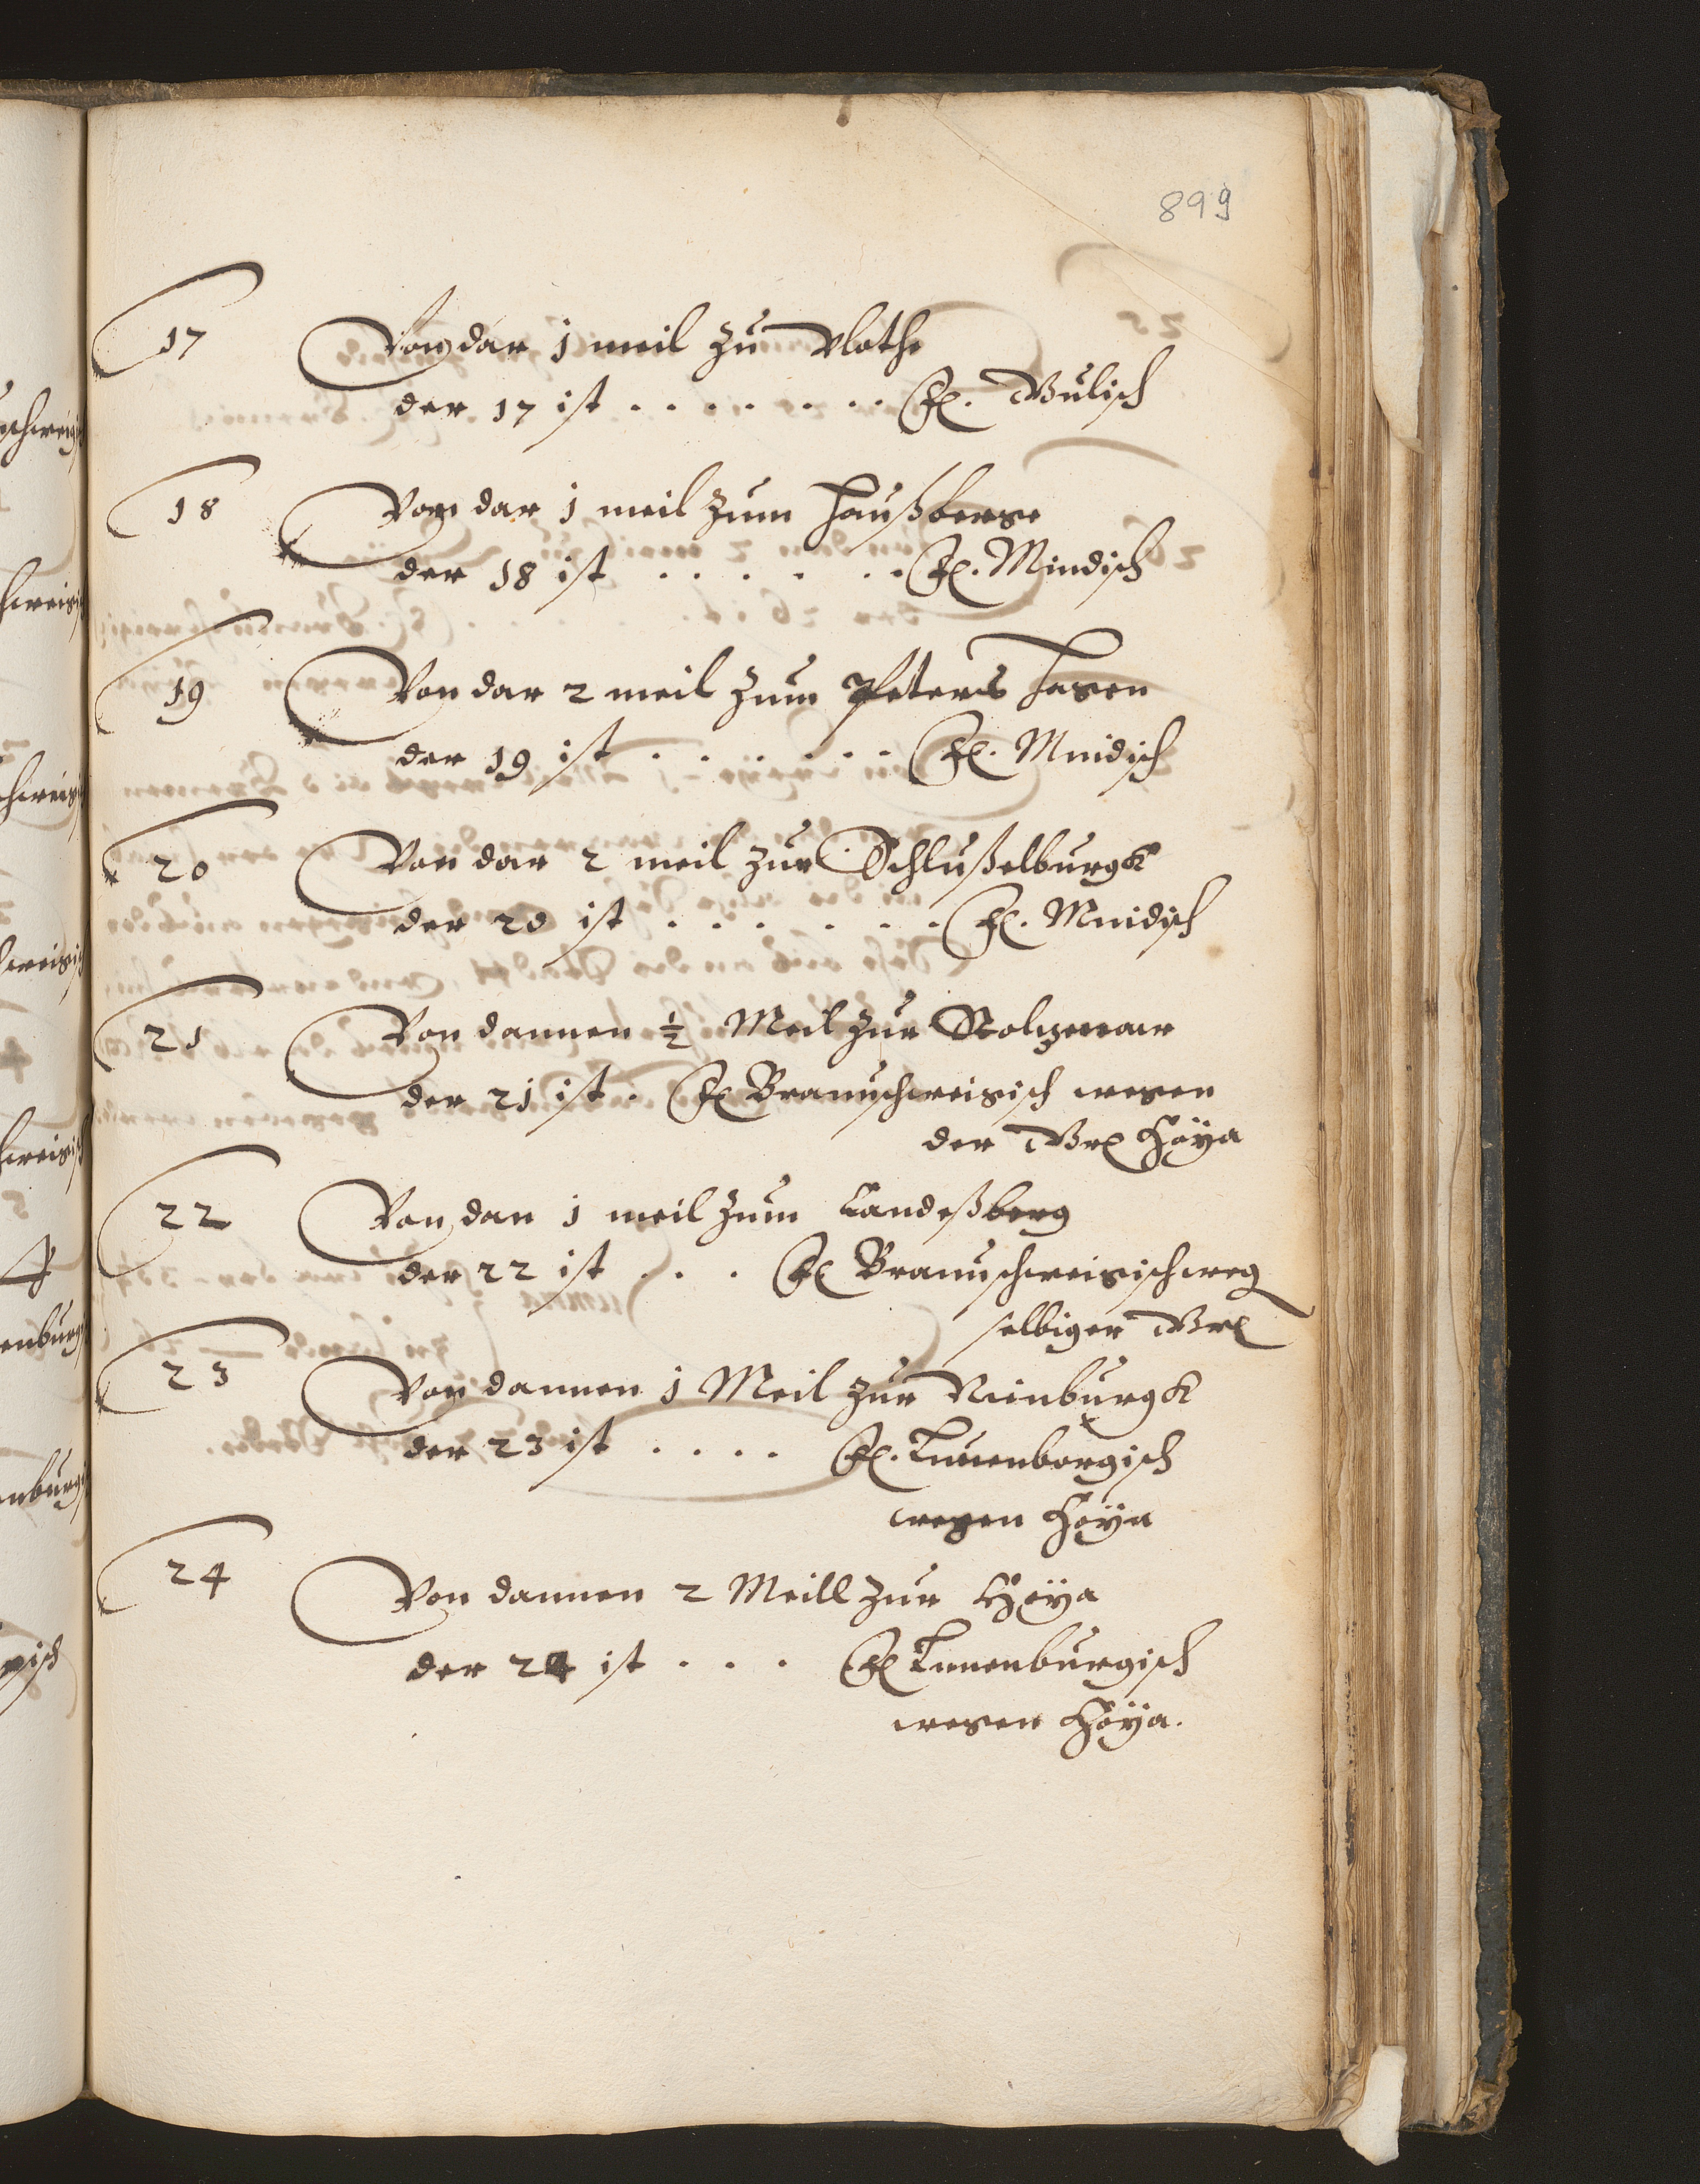 899
17 Von dar 1 meil zu Vlothe
der 17 ist . . . . . . . . Gulisch
18 Von dar 1 meil zum Haußberge
der 18 ist . . . . . . Mindisch
19 Von dar 2 meil zum Peters hagen
der 19 ist . . . . . . Mindisch
20 Von dar 2 meil zur Schlußelburgk
der 20 ist . . . . . . . Mindisch
21 Von dannen ½ Meil zur Stoltzenaw
der 21 ist . Braunschweigisch wegen
der Hoÿa
22 Von dan 1 meil zum Landeßberg
der 22 ist . . . Braunschweigisch weg
selbiger
23 Von dannen 1 Meil zur Nienburgk
der 23 ist . . . . Lunenborgisch
wegen Hoÿa
24 Von dannen 2 Meill zur Hoÿa
der 24 ist . . . Lunenburgisch
wegen Hoÿa.